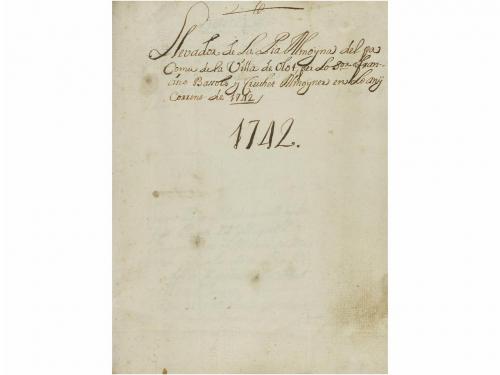 Llevador de La Pia Almoyna del pa
Comu de la Villa de Olot, per lo Sor. Fran-
cisco Bassols y Almoyner en Lo any
Corrent de 1742
1742.